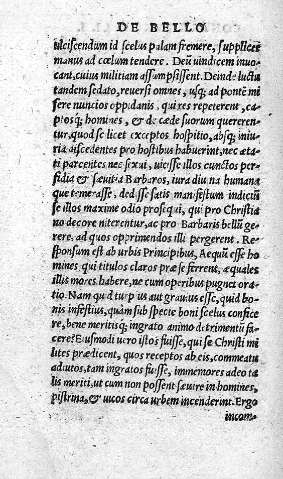 DE BELLO
ulciscendum id scelus palam fremere, supplices
manus ad cœlum tendere. Deū uindicem inuo-
cant, cuius militiam assumpsissent. Deinde luctu
tandem sedato, reuersi omnes, usq; ad pontē mi
sere nuncios oppidanis, qui res repeterent, ca-
ptosq; homines, & de cæde suorum quereren-
tur, quod se licet exceptos hospitio, absq; iniu-
ria discedentes pro hostibus habuerint, nec ætati
parcentes nec sexui, uicisse illos cunctos per-
fidia & sæuitia Barbaros, iura diuina humana
que temerasse, ded isse satis manifestum indiciū
se illos maxime odio prosequi, qui pro Christia
no decore niterentur, ac pro Barbaris bellū ge-
rere, ad quos opprimendos illi pergerent. Re-
sponsum est ab urbis Principibus, Aequū esse ho
mines qui titulos claros præ se ferrent, æquales
illis mores habere, ne cum operibus pugnet oratio
. Nam quid turpius aut grauius esse, quid bo-
nis infestius, quàm sub specte boni scelus confice
re, bene meritisq; ingrato animo detrimentū fa-
cere? Eiusmodi uero istos fuisse, qui se Christi mi
lites prædicent, quos receptos ab eis, commeatu
adiutos, tam ingratos fuisse, immemores adeo ta
lis meriti, ut cum non possent sæuire in homines,
pistrina, & uicos circa urbem incenderint. Ergo
incom-